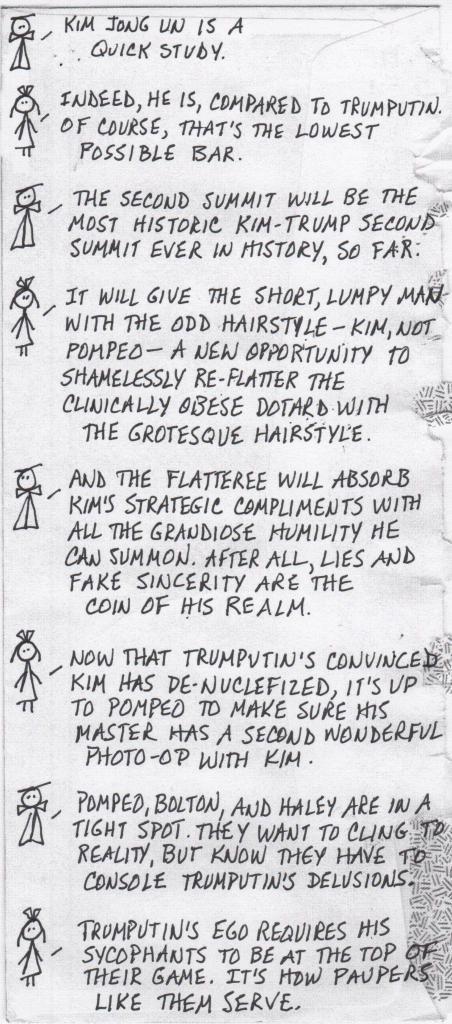 KIM JONG UN IS A
QUICK STUDY.
INDEED, HE IS, COMPARED TO TRUMPUTIN.
OF COURSE, THAT'S THE LOWEST
POSSIBLE BAR.
THE SECOND SUMMIT WILL BE THE
MOST HISTORIC KIM-TRUMP SECOND
SUMMIT EVER IN HISTORY, SO FAR.
IT WILL GIVE THE SHORT, LUMPY MAN
WITH THE ODD HAIRSTYLE – KIM, NOT
POMPEO – A NEW OPPORTUNITY TO
SHAMELESSLY RE-FLATTER THE
CLINICALLY OBESE DOTARD WITH
THE GROTESQUE HAIRSTYLE.
AND THE FLATTEREE WILL ABSORB
KIM'S STRATEGIC COMPLIMENTS WITH
ALL THE GRANDIOSE HUMILITY HE
CAN SUMMON. AFTER ALL, LIES AND
FAKE SINCERITY ARE THE
COIN OF HIS REALM.
NOW THAT TRUMPUTIN'S CONVINCED
KIM HAS DE-NUCLEFIZED, IT'S UP
TO POMPEO TO MAKE SURE HIS
MASTER HAS A SECOND WONDERFUL
PHOTO-OP WITH KIM.
POMPEO, BOLTON, AND HALEY ARE IN A
TIGHT SPOT. THEY WANT TO CLING TO
REALITY, BUT KNOW THEY HAVE TO
CONSOLE TRUMPUTIN'S DELUSIONS.
TRUMPUTIN'S EGO REQUIRES HIS
SYCOPHANTS TO BE AT THE TOP OF
THEIR GAME. IT'S HOW PAUPERS
LIKE THEM SERVE.